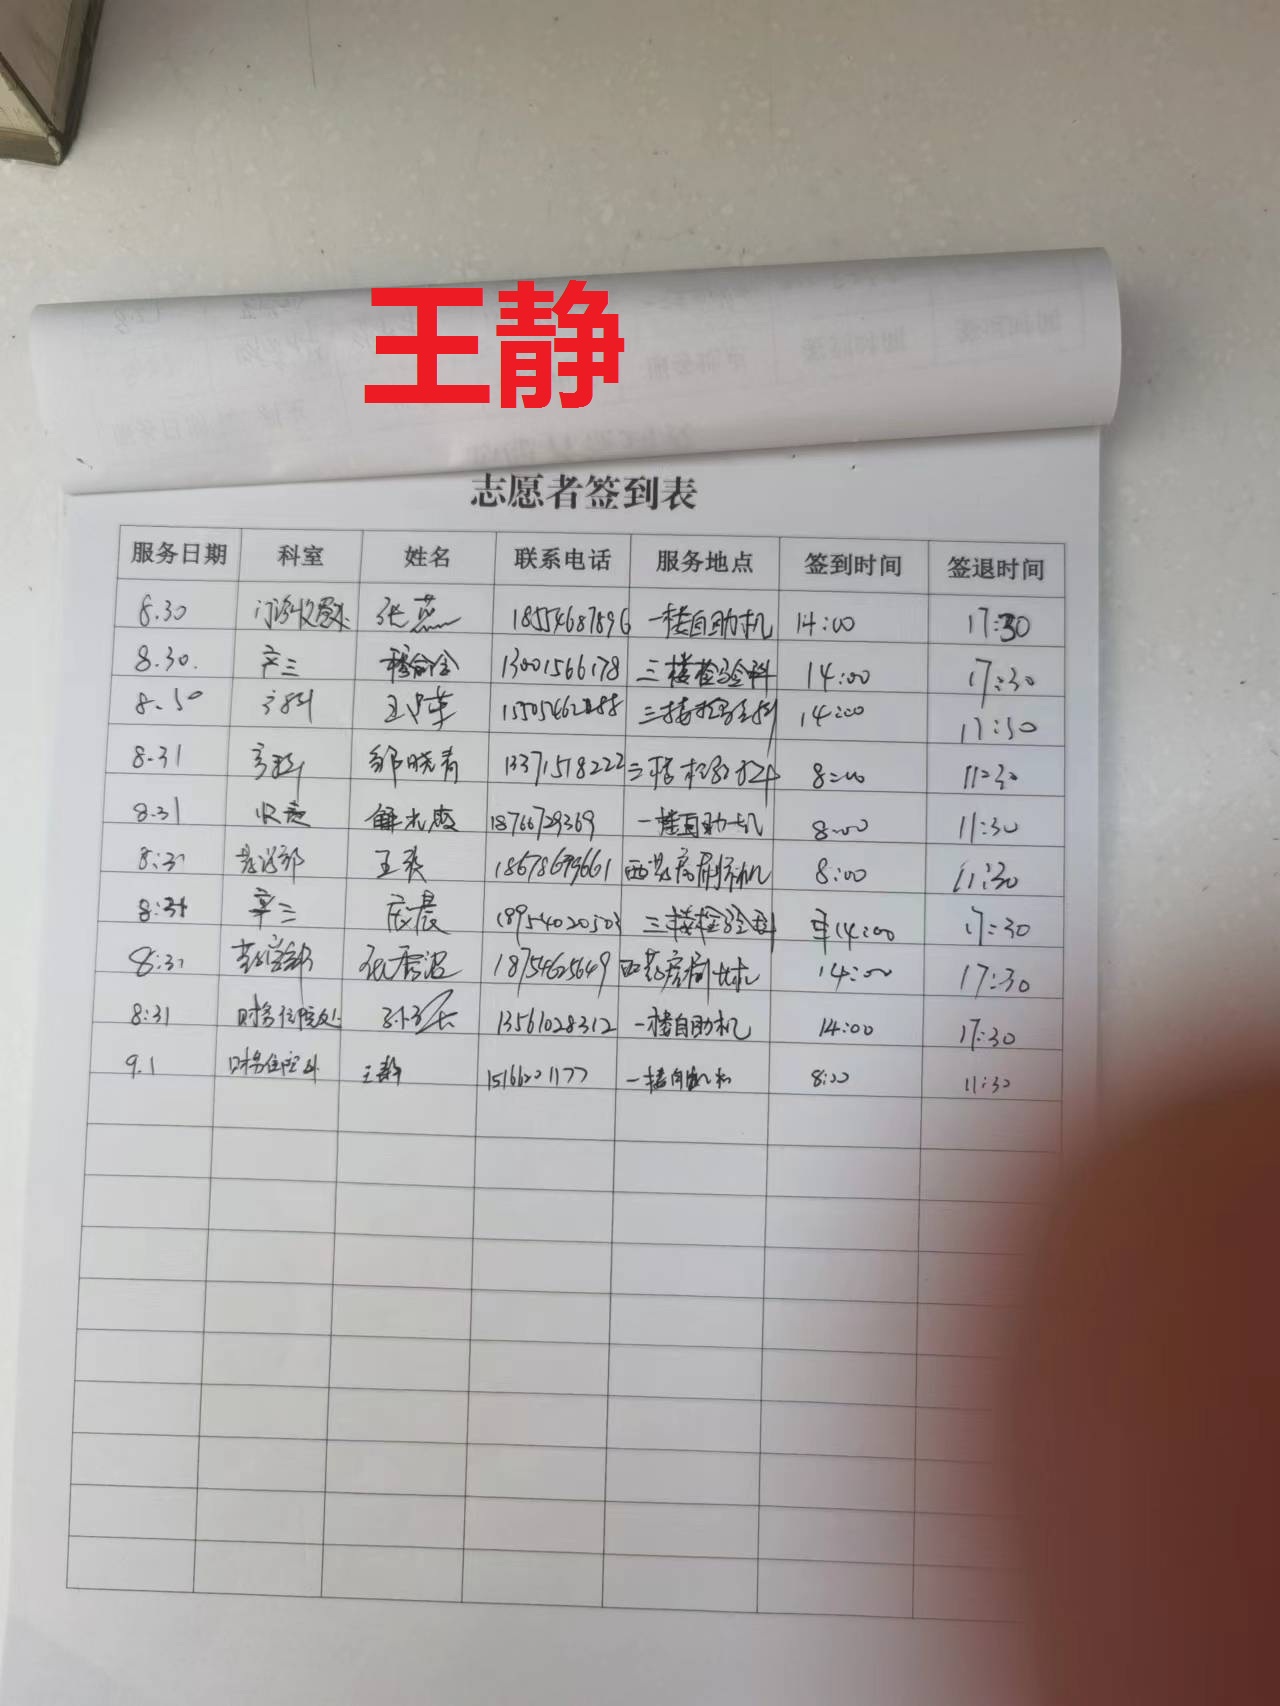 王静
志愿者签到表
服务日期 科室 姓名 联系电话 服务地点 签到时间 签退时间
8.30 门诊收费处 张燕 18554687896 一楼自助机 14:00 17:30
8.30. 产三 13001566178 三楼检验科 14:00 17:30
8.30 15505462888 三楼检验科 14:00 17:30
8.31 邹晓青 13371518222 三楼检验科 8:00 11:30
8.31 收费 解光霞 18766729369 一楼自助机 8:00 11:30
8:31 王爽 8:00 11:30
8:31 18954020503 三楼检验科 14:00 17:30
8:31 18754625649 14:00 17:30
8:31 财务住院处 13561028312 一楼自助机 14:00 17:30
9.1 财务住院处 王静 15166201177 一楼自助机 8:00 11:30